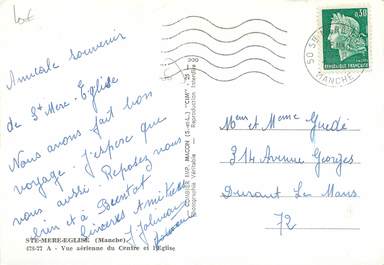 Amicale souvenir
de Ste Mere-Eglise
Nous avons fait bon
voyage. J'espere que
vous aussi. Reposez vous
bien et à Bientot
Sinceres Amitiées
STE-MERE-EGLISE (Manche)
478-77 A - Vue aérienne du Centre et l'Eglise
MACON (S.-et-L.) "CIM"
Reproduction interdite
Photographie Véritable
0,30
REPUBLIQUE FRANÇAISE
50 STE MERE
MANCHE
Meur et Meme Guedé
314 Avenue Georges
Durant Le Mans
72